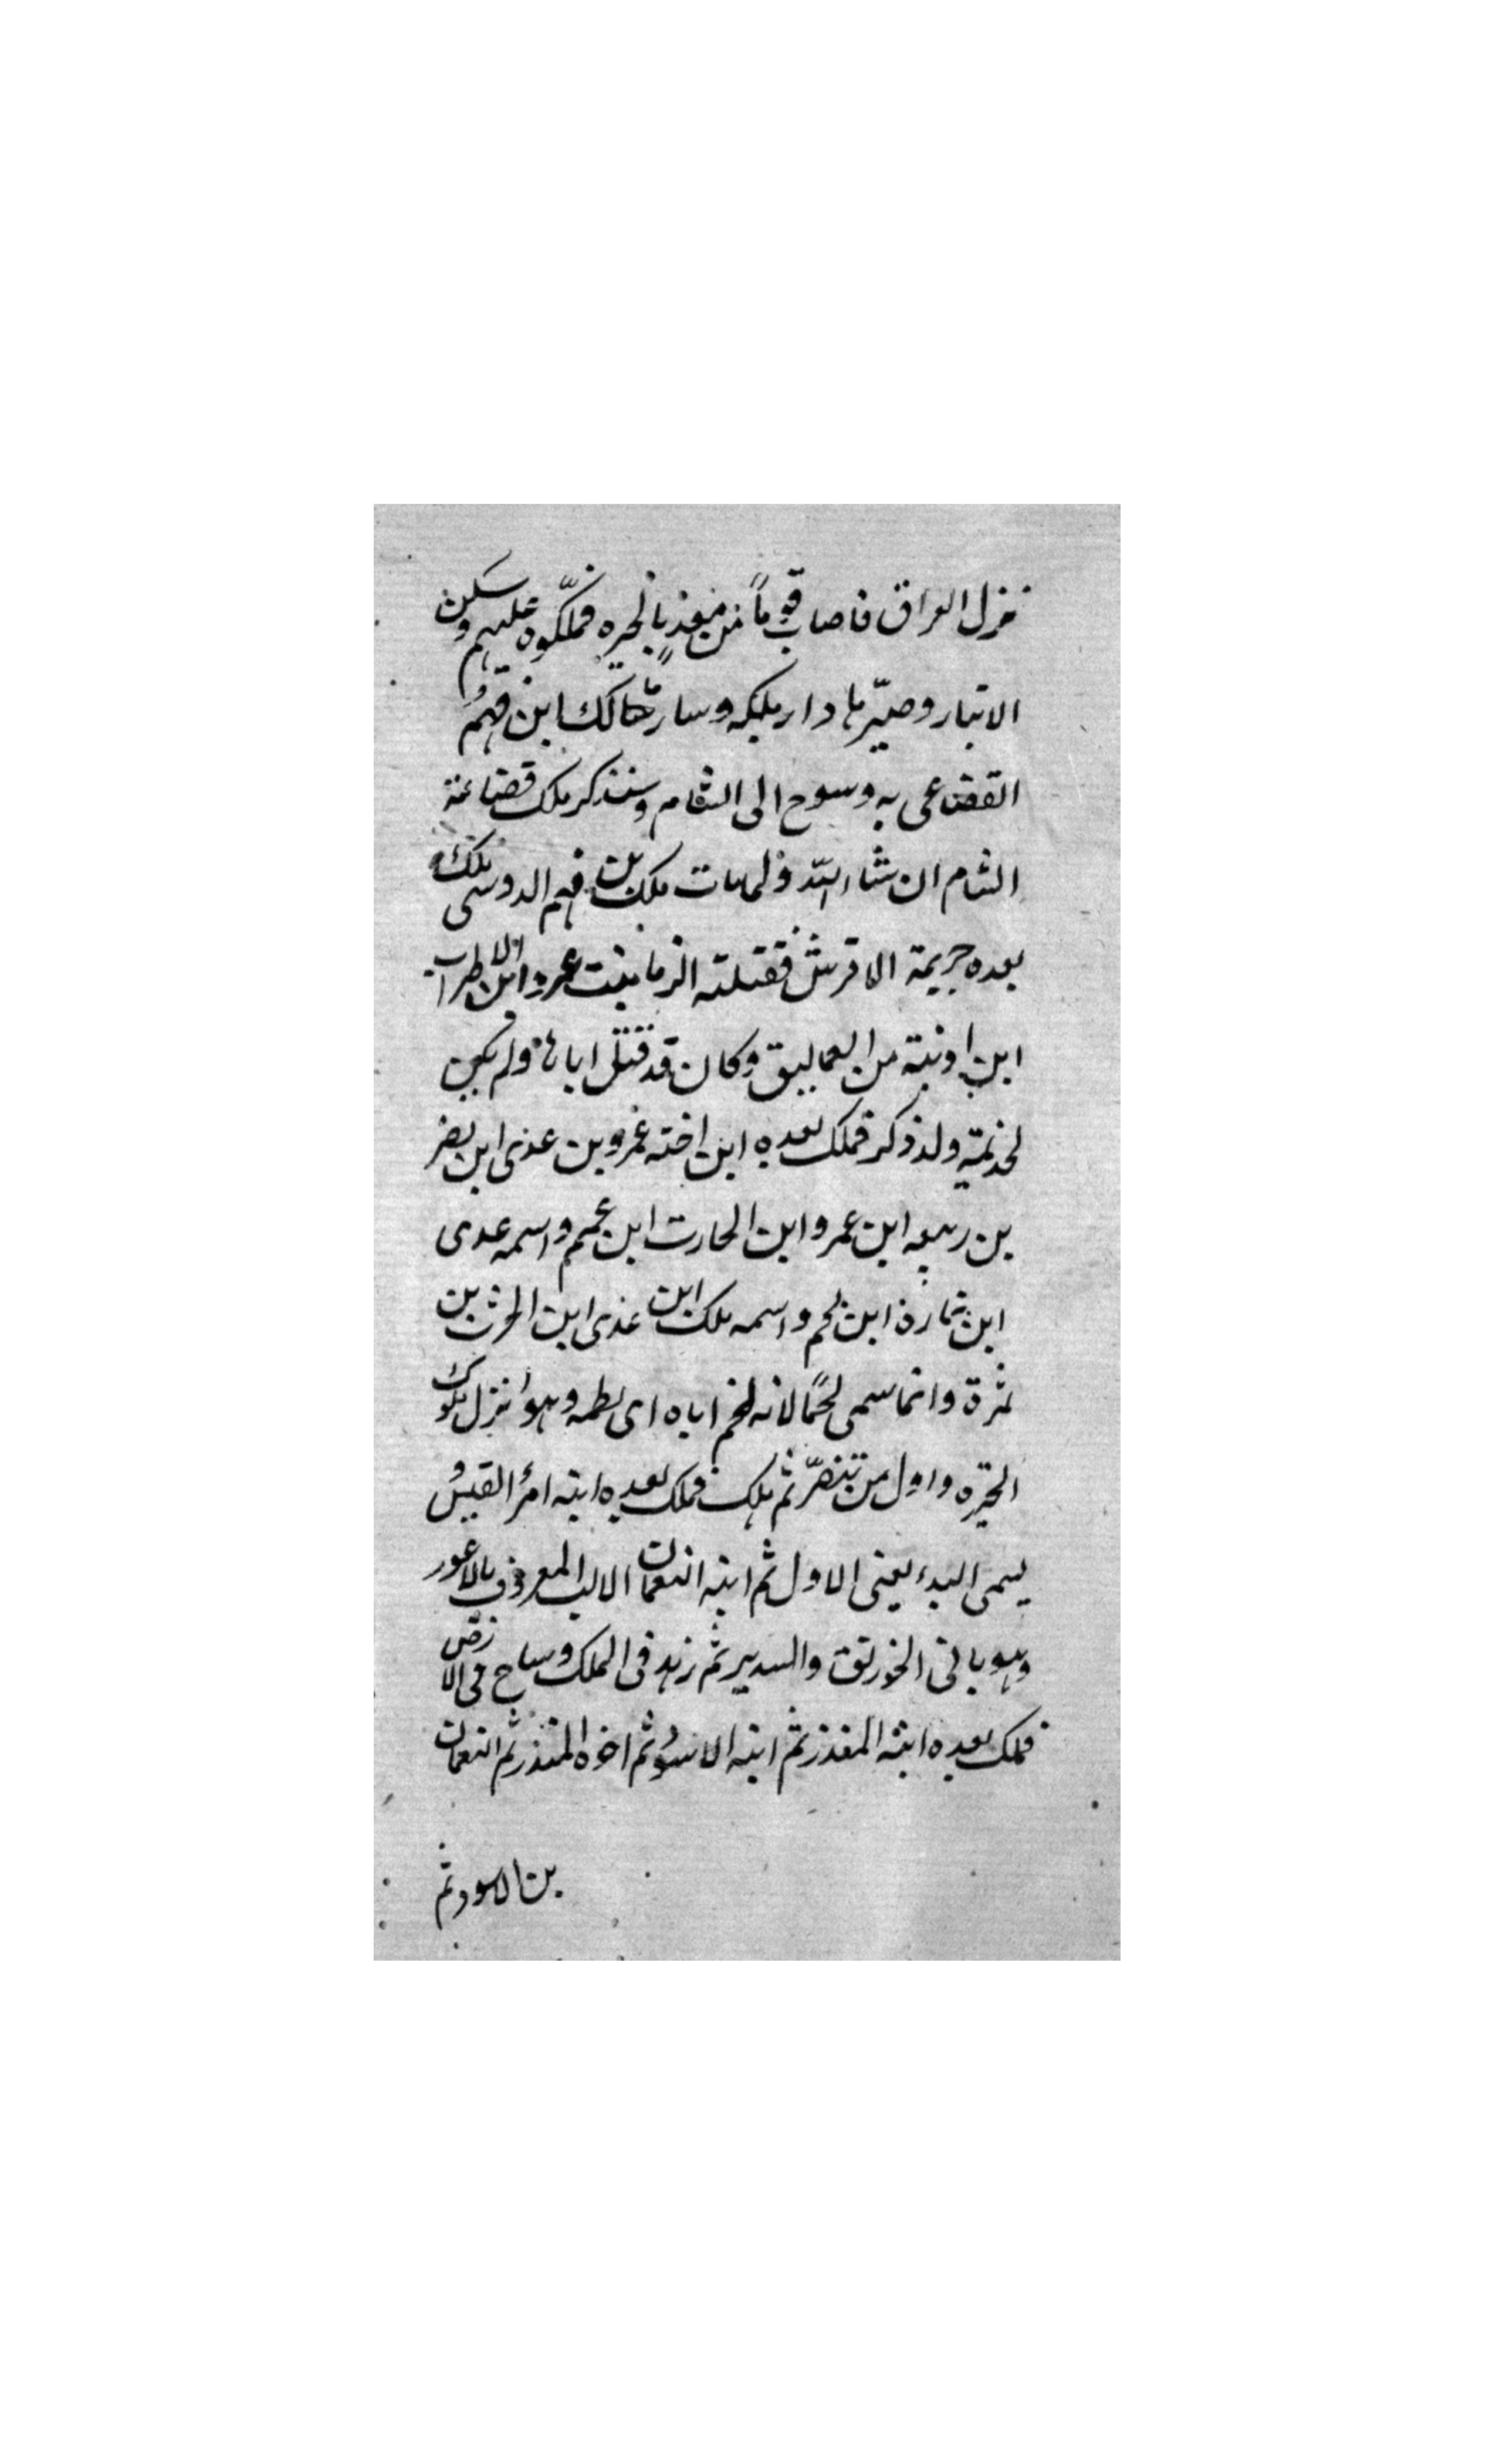 فنزل العراق فاصاب قوماً من معدٍ بالحيره فملّكوه عليهم وسكن
الانبار وصيّرها دار ملكه وسار مالك ابن فهم
القضاعى به وسوح الى الشام وسنذكر ملك قضاعة
الشام ان شاء الله ولما مات ملك بن فهم الدوسى ملك
بعده جريمة الاقرش فقتلته الزما بنت عمرو ابن الاطراب
ابن اونية من العماليق وكان قد قتل اباها ولم يكن
لخذيمة ولد ذكر فملك بعده ابن اخته عمرو بن عذى ابن نضر
بن ربيعه ابن عمرو ابن الحارث ابن عجم واسمه عدى
ابن نمارة ابن لخم واسمه ملك ابن عذى ابن الحرث بن
نمرة وانما سمى لخمًا لانه لخم اباه اى لطمه وهو انزل ملوك
الحيره واول من تنصّر ثم هلك فملك بعده ابنه امرؤ القيس
يسمى البدء يعنى الاول ثم ابنه النعمان الاب المعروف بالاعور
وهو بانى الخورنق والسدير ثم زهد فى الملك وساح فى الارض
فملك بعده ابنه المنذر ثم ابنه الاسود ثم اخوه المنذر ثم النعمان
بن الاسود ثم